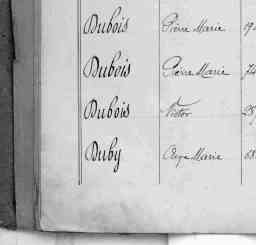 Dubois Pierre Marie
Dubois Pierre Marie 74
Dubois Victor
Duby Marie 68